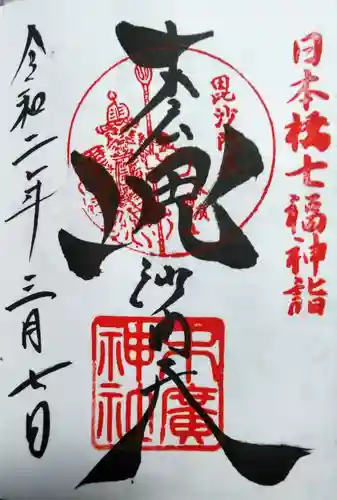 日本橋七福神詣
毘沙門
末広
毘沙門天
末廣神社
令和二年三月七日